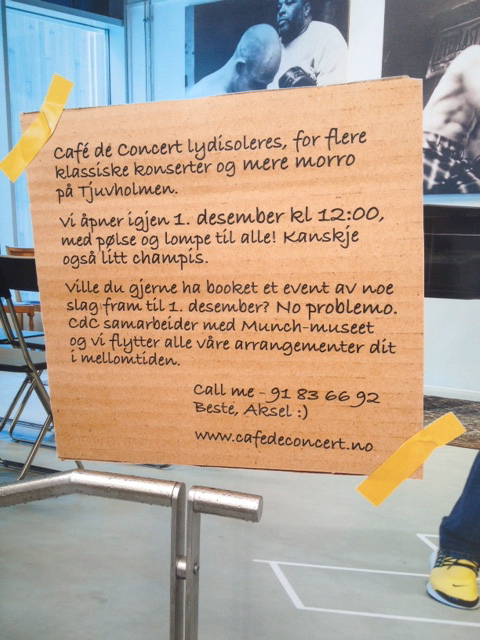 Café de Concert lydisoleres, for flere
klassiske konserter og mere morro
på Tjuvholmen.
Vi åpner igjen 1. desember kl 12:00,
med pølse og lompe til alle! Kanskje
også litt champis.
Ville du gjerne ha booket et event av noe
slag fram til 1. desember? No problemo.
CdC samarbeider med Munch-museet
og vi flytter alle våre arrangementer dit
i mellomtiden.
Call me - 91 83 66 92
Beste, Aksel :)
www.cafedeconcert.no